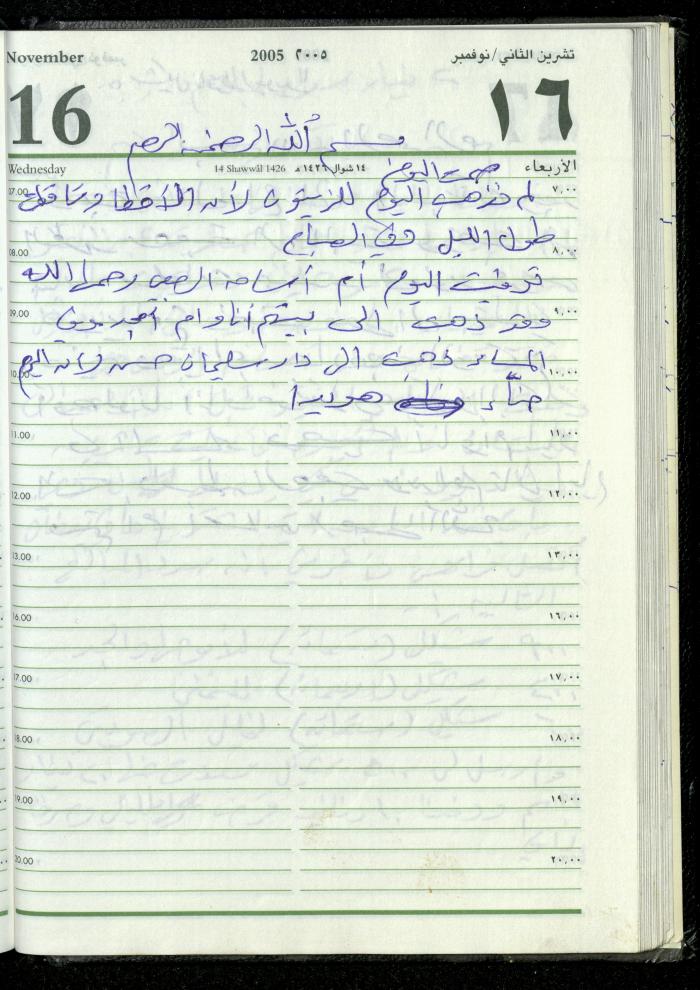 November 2005 ٢٠٠٥ تشرين الثاني/نوفمبر
16 ١٦
بسم الله الرحمن الرحيم
Wednesday 14 Shawwāl 1426 ١٤ شوال ١٤٢٦ه الأربعاء
صمت اليوم
07.00 لم نذهب اليوم للزيتون لأن الأمطار تساقطت ٧,٠٠
طول الليل وفي الصباح
08.00 ٨,٠٠
توفيت اليوم أم أسامة رحمها الله
09.00 وقد ذهبت الى بيتهم أنا وام أمجد وفي ٩,٠٠
المساء ذهبت الى دار سليمان حسن لأن اليوم
10.00 ١٠,٠٠
حنّاء هويدا
11.00 ١١,٠٠
12.00 ١٢,٠٠
13.00 ١٣,٠٠
16.00 ١٦,٠٠
17.00 ١٧,٠٠
18.00 ١٨,٠٠
19.00 ١٩,٠٠
20.00 ٢٠,٠٠